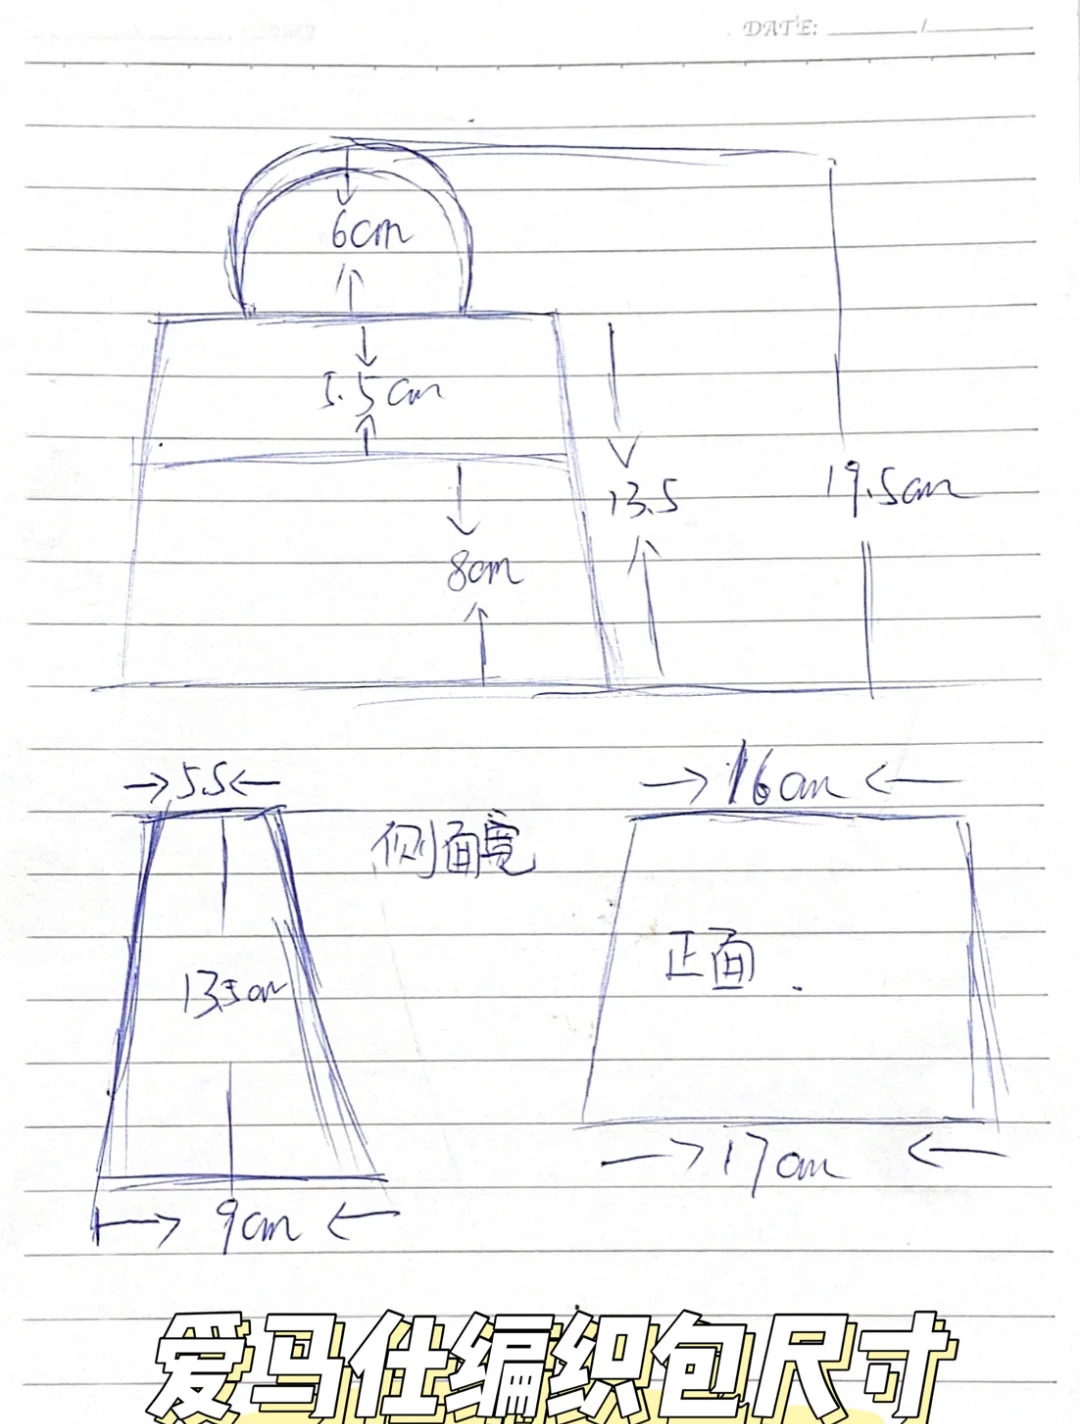 DATE: ______/______
6cm
5.5cm
13.5
19.5cm
8cm
5.5
16cm
侧面宽
正面.
13.5cm
17cm
9cm
爱马仕编织包尺寸